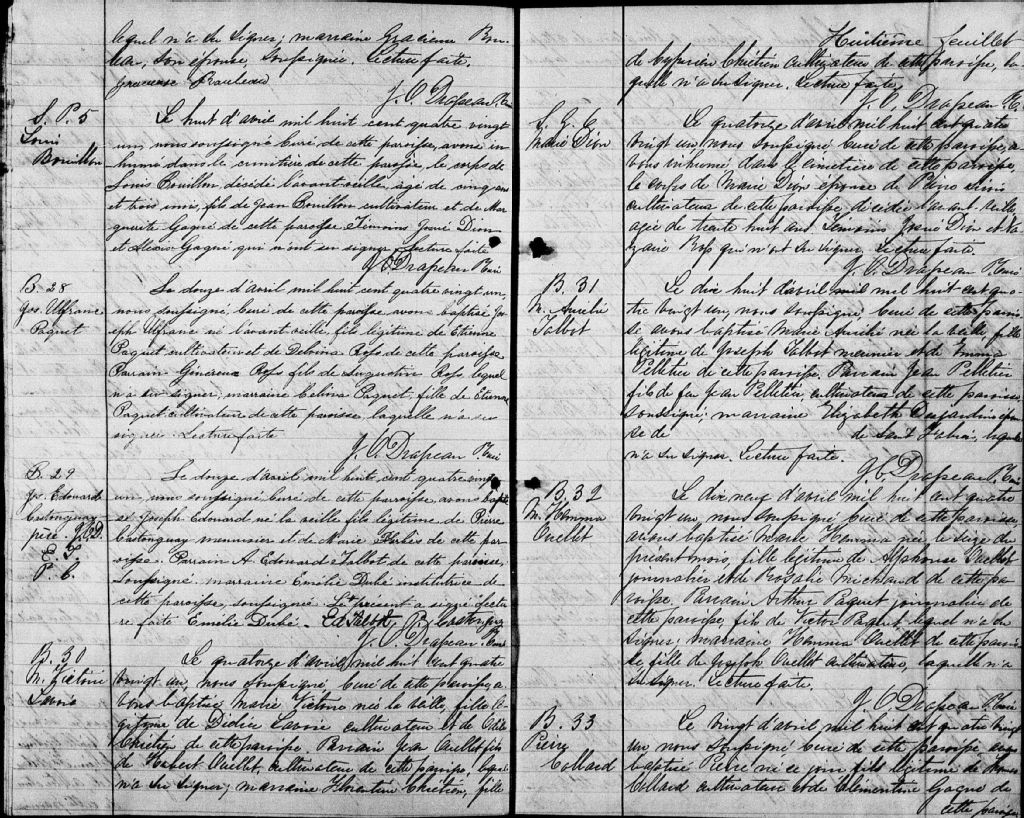 lequel n'a su signer; marraine Gracieuse
son épouse, soussignée. Lecture faite.
Gracieuse Rouleau
J. O. Drapeau Ptre
S. P. 5
Louis
Bouillon
Le huit d'avril mil huit cent quatre vingt
un, nous soussigné Curé de cette paroisse, avons in-
humé dans le cimetière de cette paroisse le corps de
Louis Bouillon, décédé l'avant-veille, agé de cinq ans
et trois mois, fils de Jean Bouillon cultivateur et de Mar-
guerite Gagné de cette paroisse. Témoins José Dion
et Gagné qui n'ont su signer. Lecture faite
J. O. Drapeau Ptre
B. 28
Jos. Ulfrane
Paquet
Le douze d'avril mil huit cent quatre vingt un,
nous soussigné, Curé de cette paroisse avons baptisé Jo-
seph Ulfrane né l'avant veille, fils légitime de Etienne
Paquet cultivateur et de Delvina Ross de cette paroisse
Parrain Généreux Ross fils de Augustin Ross lequel
n'a su signer, marraine Paquet, fille de Etienne
Paquet cultivateur de cette paroisse laquelle n'a su
signer. Lecture faite
J. O. Drapeau Ptre
B. 29
Jos. Edouard
Castonguay
J.O.D.
E. T.
P. C.
Le douze d'avril mil huit cent quatre vingt
un, nous soussigné Curé de cette paroisse, avons bapti-
sé Joseph Edouard né la veille fils légitime de Pierre
Castonguay menuisier et de Marie Dubé de cette pa-
roisse. Parrain A. Edouard Talbot de cette paroisse,
soussigné, marraine Emélie Dubé institutrice de
cette paroisse, soussignée. Le présent a signé. Lectu-
re faite Emélie Dubé. Ed Talbot P. Castonguay
J. O. Drapeau Ptre
B. 30
M. Victoire
Lavoie
Le quatorze d'avril, mil huit cent quatre
vingt un, nous soussigné Curé de cette paroisse, a-
vons baptisé Marie Victoire née la veille, fille lé-
gitime de Didier Lavoie cultivateur et de
Chrétien de cette paroisse. Parrain Jean Ouellet fils
de Hubert Ouellet, cultivateur de cette paroisse, lequel
n'a su signer; marraine Florentine Chrétien, fille
Huitième feuillet
de Cyprien Chrétien cultivateur de cette paroisse, la-
quelle n'a su signer. Lecture faite
J. O. Drapeau Ptre
S. G. 6
Marie Dion
Le quatorze d'avril mil huit cent quatre
vingt un, nous soussigné Curé de cette paroisse, a-
vons inhumé dans le cimetière de cette paroisse,
le corps de Marie Dion épouse de
cultivateur de cette paroisse, décédée l'avant-veille
agée de trente huit ans. Témoins José Dion et La-
zare Ross qui n'ont su signer. Lecture faite.
J. O. Drapeau Ptre
B. 31
M. Aurélie
Talbot
Le dix huit d'avril mil huit cent qua-
tre vingt un, nous soussigné, Curé de cette parois-
se avons baptisé Marie Aurélie née la veille fille
légitime de Joseph Talbot meunier et de Emma
Pelletier de cette paroisse. Parrain Jean Pelletier
fils de feu Jean Pelletier, cultivateur de cette paroisse,
soussigné; marraine Elizabeth Desjardins épou-
se de de Saint Fabien, laquelle
n'a su signer. Lecture faite.
J. O. Drapeau Ptre
B. 32
M. Hemma
Ouellet
Le dix neuf d'avril mil huit cent quatre
vingt un, nous soussigné, Curé de cette paroisse,
avons baptisé Marie Hemma née le seize du
présent mois, fille légitime de Alphonse Ouellet
journalier et de Rosalie Michaud de cette pa-
roisse. Parrain Arthur Paquet journalier de
cette paroisse, fils de Victor Paquet lequel n'a su
signer; marraine Hemma Ouellet de cette parois-
se, fille de Joseph Ouellet cultivateur, laquelle n'a
su signer. Lecture faite.
J. O. Drapeau Ptre
B. 33
Pierre
Collard
Le vingt d'avril mil huit cent quatre vingt
un nous soussigné Curé de cette paroisse avons
baptisé Pierre né ce jour fils légitime de
Collard cultivateur et de Clémentine Gagné de
cette paroisse